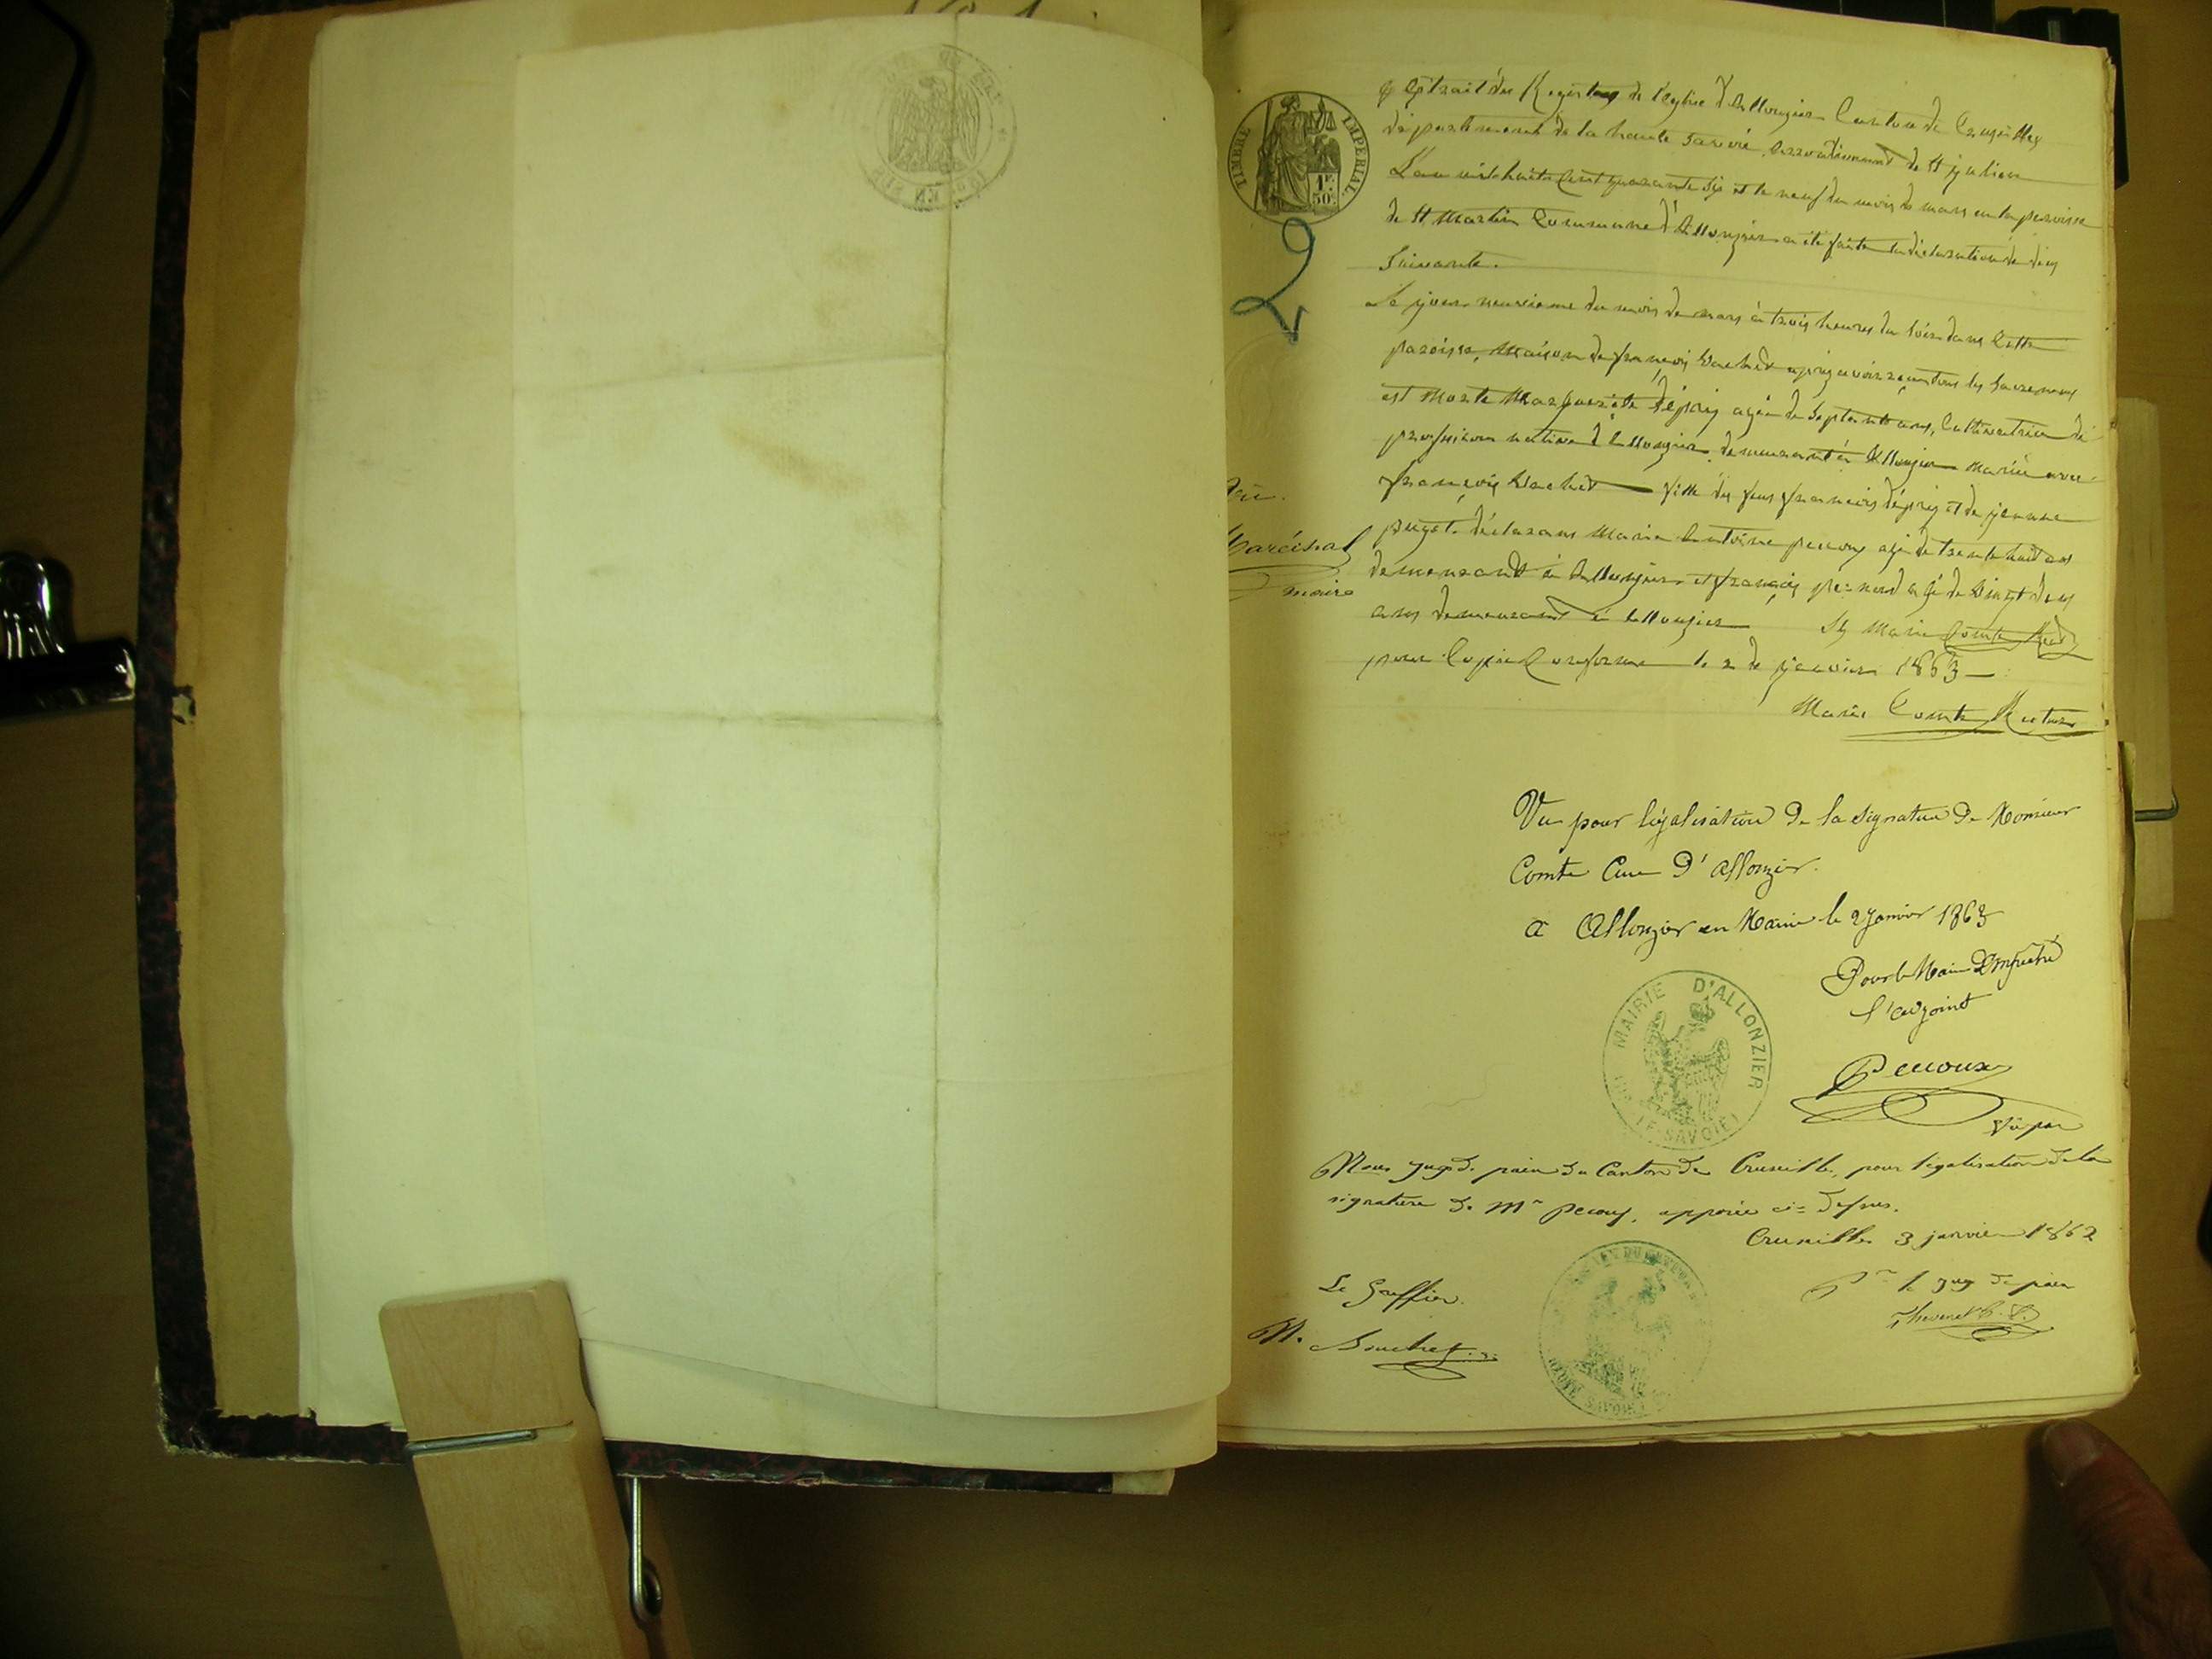 TIMBRE IMPERIAL
1F. 50c.
2
Extrait des Registres de l'église d'allonzier Canton de Cruseilles
département de la haute Savoie, arrondissement de St julien
L'an mil huit Cent quarante six et le neuf du mois de mars en la paroisse
de St Martin Commune d'allonzier a été faite la déclaration de décès
suivante.
Le jour neuvieme du mois de mars à trois heures du soir dans Cette
paroisse, Maison de françois après avoir reçu tous les Sacremens
est Morte Marguerite agée de Septante ans, Cultivatrice de
profession native d'allonzier, demeurant à allonzier Mariée avec
françois fille des feus françois et de jeanne
déclarans Marie antoine agé de trente huit ans
demeurant à allonzier et françois agé de vingt deux
ans demeurant à allonzier Sg Marin Comte Rect
pour Copie Conforme le 2 de janvier 1863
Marin Comte Recteur
Maréchal
maire
Vu pour légalisation de la signature de Monsieur
Comte Curé d'allonzier.
a Allonzier en Mairie le 2 Janvier 1863
Pour le Maire Empeché
l'adjoint
Pecoux
MAIRIE D'ALLONZIER
(HTE SAVOIE)
Vu par
Nous Juge de paix du Canton de Cruseilles, pour légalisation de la
signature de Mr Pecoux, apposée ci-dessus.
Cruseilles 3 janvier 1862
Le Greffier.
Pr le Juge de paix
M. Bouchet